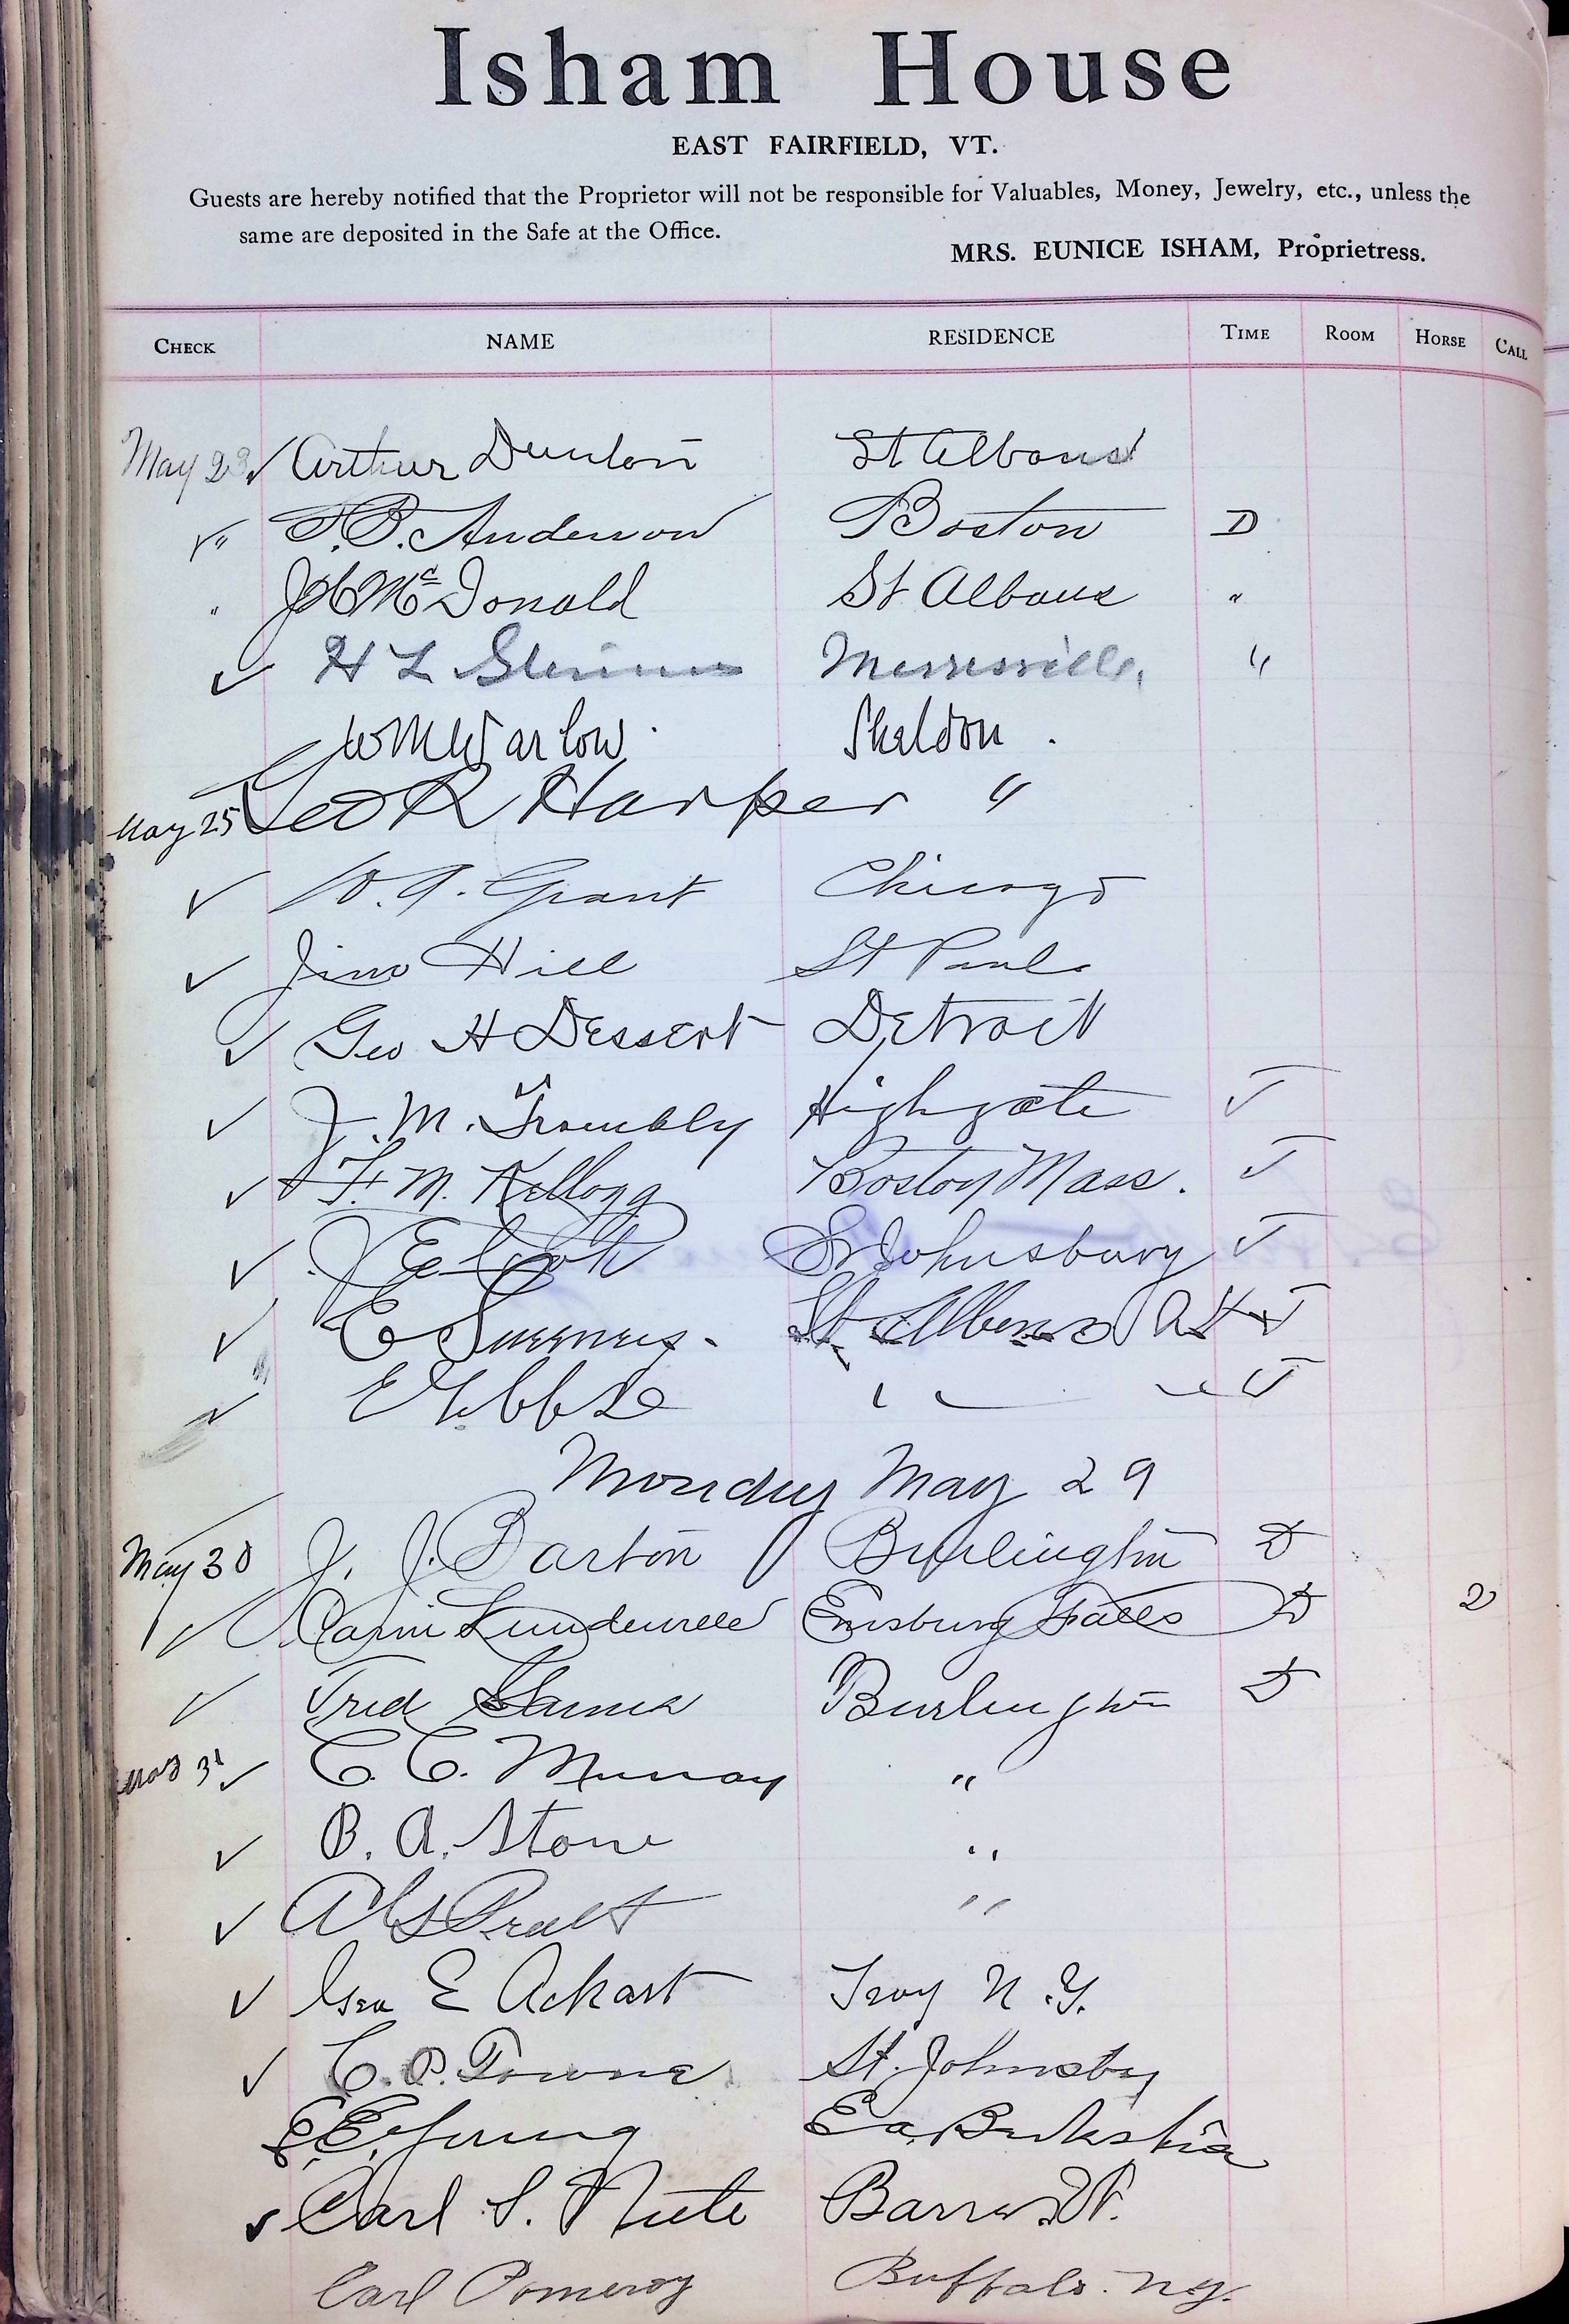 Isham House
EAST FAIRFIELD, VT.
Guests are hereby notified that the Proprietor will not be responsible for Valuables, Money, Jewelry, etc., unless the
same are deposited in the Safe at the Office.
MRS. EUNICE ISHAM, Proprietress.
CHECK NAME RESIDENCE TIME ROOM HORSE CALL
May 23 ✓ Arthur Dunton St Albans
✓ " Anderson Boston D
" McDonald St Albans "
✓ H L Morrisville "
Wm Warlow. Sheldon.
May 25 Geo R Harper "
✓ Grant Chicago
✓ Jim Hill St Paul
✓ Geo H Dessert Detroit
✓ J. M. Trombly Highgate T
✓ F. M. Kellogg Boston Mass. T
✓ St Johnsbury T
✓ E Sweeney. St Albans T
✓ " T
Monday May 29
May 30 J. J. Barton Burlington D
✓ Enosburg Falls D 2
✓ Fred Burlington D
May 31 ✓ C. C. Murray "
✓ B. A. Stone "
✓ "
✓ Geo E Ackart Troy N.Y.
✓ C. P. Towne St. Johnsby
E. E. Young Ea. Berkshire
✓ Carl S. Niete Barre Vt.
Carl Pomeroy Buffalo. N.Y.